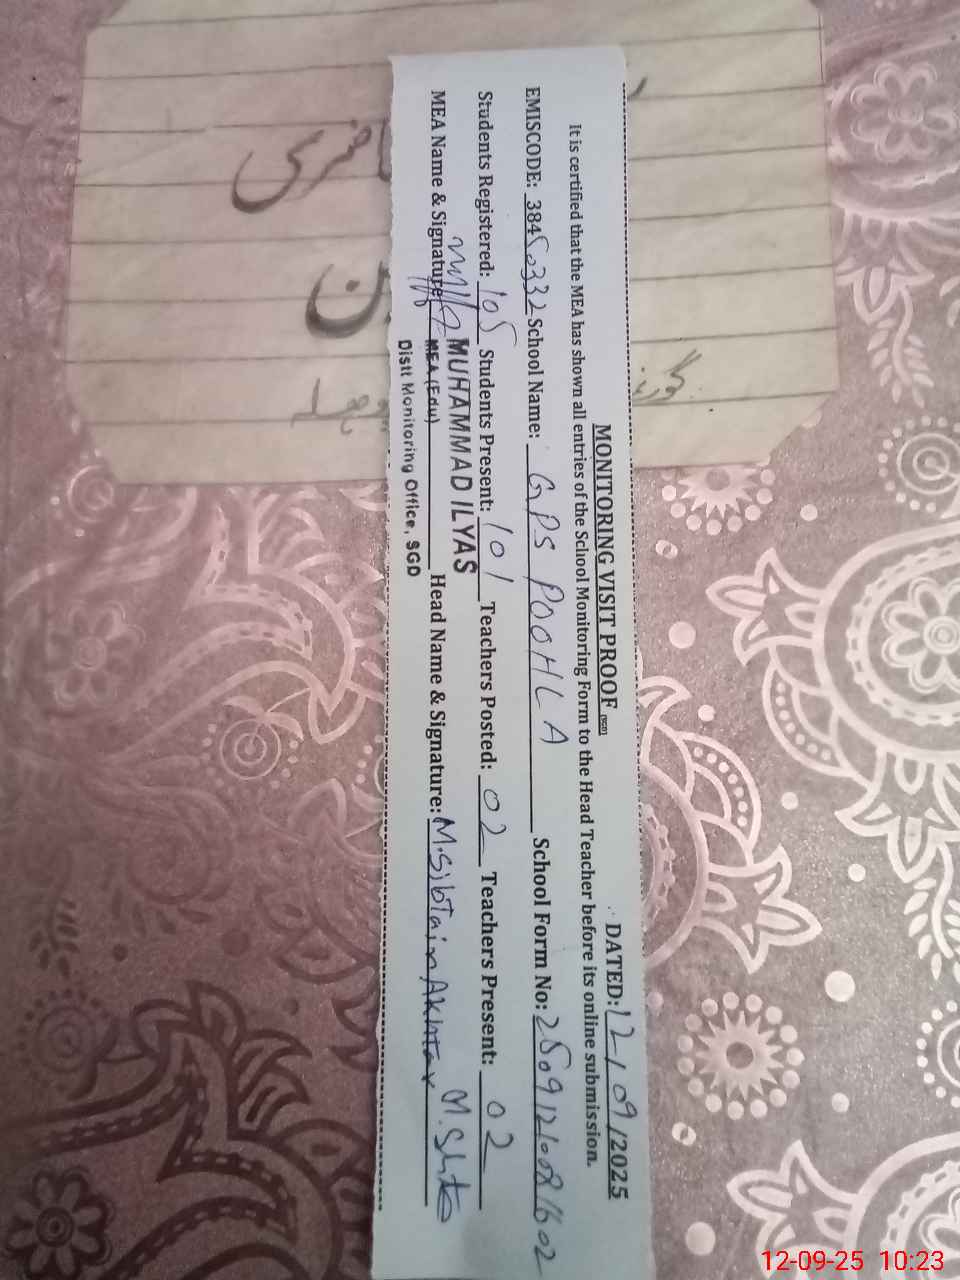 MONITORING VISIT PROOF DATED: 12/09/2025
It is certified that the MEA has shown all entries of the School Monitoring Form to the Head Teacher before its online submission.
EMISCODE: 38450332 School Name: GPS POOHLA School Form No: 25091210081602
Students Registered: 105 Students Present: 101 Teachers Posted: 02 Teachers Present: 02
MUHAMMAD ILYAS
MEA Name & Signature: MEA (Edu) Head Name & Signature: M.Sibtain Akhtar
Distt Monitoring Office, SGD
12-09-25 10:23